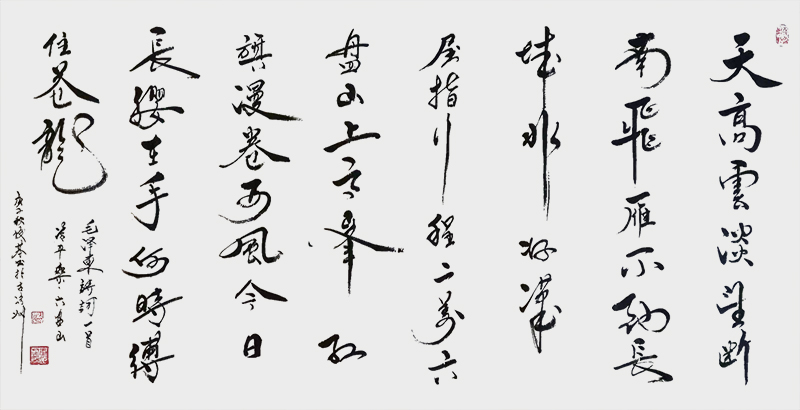 天高雲淡望断
南飛雁不到長
城非好漢
屈指行程二萬六
盘山上高峰紅
旗漫卷西風今日
長纓在手何時縛
住苍龍
毛泽東詩詞一首
清平樂·六盘山